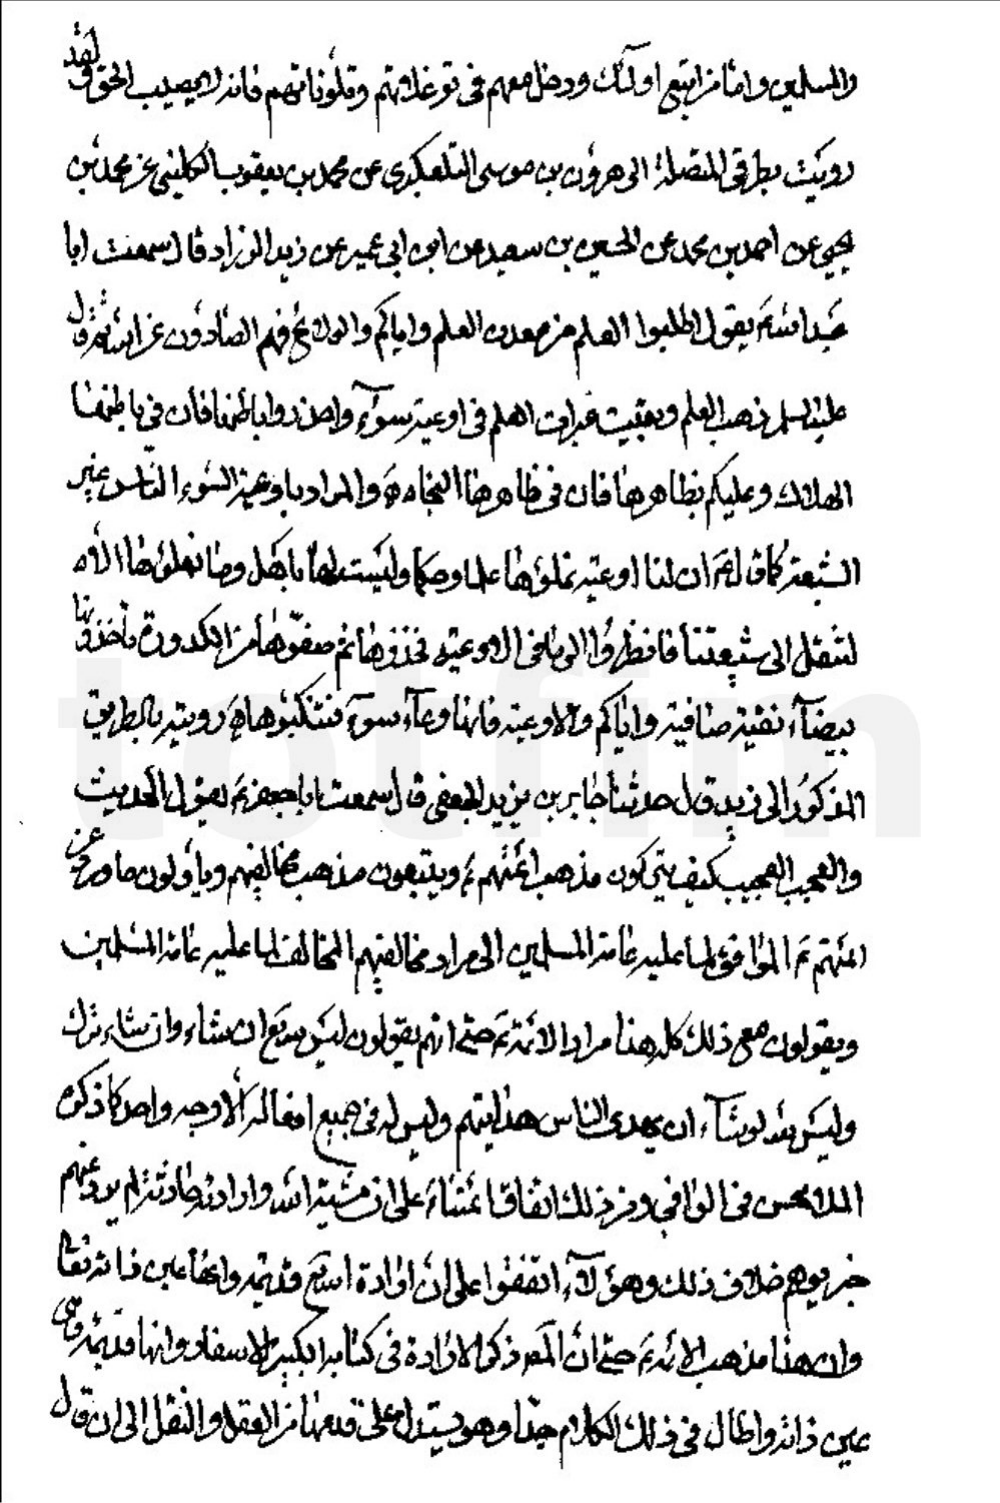 والمسلمين واما من اتبع اولئك ودخل معهم في توغلاتهم وتلوناتهم فانه لا يصيب الحق ولقد
رويت بطرقي المتصلة الى هرون بن موسى التلعكبري عن محمد بن يعقوب الكليني عن محمد بن
يحيى عن احمد بن محمد عن الحسين بن سعيد عن ابن ابي عمير عن زيد الزراد قال سمعت ابا
عبد الله ع يقول اطلبوا العلم من معدن العلم واياكم والولائج فهم الصادون عن الله ثم قال
عليه السلم ذهب العلم وبقيت غبرات العلم في اوعية سوء واحذروا باطنها فان في باطنها
الهلاك وعليكم بظاهرها فان في ظاهرها النجاة ه والمراد باوعية السوء الناس غير
الشيعة كما قال ع ان لنا اوعية نملؤها علما وحكما وليست لها باهل وما نملؤها الا
لتنقل الى شيعتنا فانظروا الى ما في الاوعية فخذوها ثم صفوها من الكدورة تأخذونها
بيضاء نقية صافية واياكم والاوعية فانها وعاء سوء فتنكبوها ه رويته بالطريق
المذكور الى زيد قال حدثنا جابر بن يزيد الجعفي قال سمعت ابا جعفر ع يقول الحديث
والعجب العجيب كيف يتركون مذهب ائمتهم ع ويتبعون مذهب مخالفيهم ويأولون ما ورد عن
ائمتهم ع الموافق لما عليه عامة المسلمين الى مراد مخالفيهم المخالف لما عليه عامة المسلمين
ويقولون مع ذلك كله هذا مراد الائمة ع حتى انهم يقولون ليس يسع ان شاء وان شاء ترك
وليس لله لو شاء ان يهدي الناس هدايتهم وليس له في جميع افعاله الا وجه واحد كما ذكره
الملا محسن في الوافي ومن ذلك اتفاق ائمتنا ع على ان مشية الله وارادته حادثة لم يرد عنهم
خبر يوهم خلاف ذلك وهؤلاء اتفقوا على ان ارادة الله قديمة وانها عين ذاته تعالى
وان هذا مذهب الائمة ع حتى ان الملا ذكر الارادة في كتابه الكبير الاسفار وانها قديمة وهي
عين ذاته واطال في ذلك الكلام جدا وهو يستدل على قدمها من العقل والنقل الى ان قال